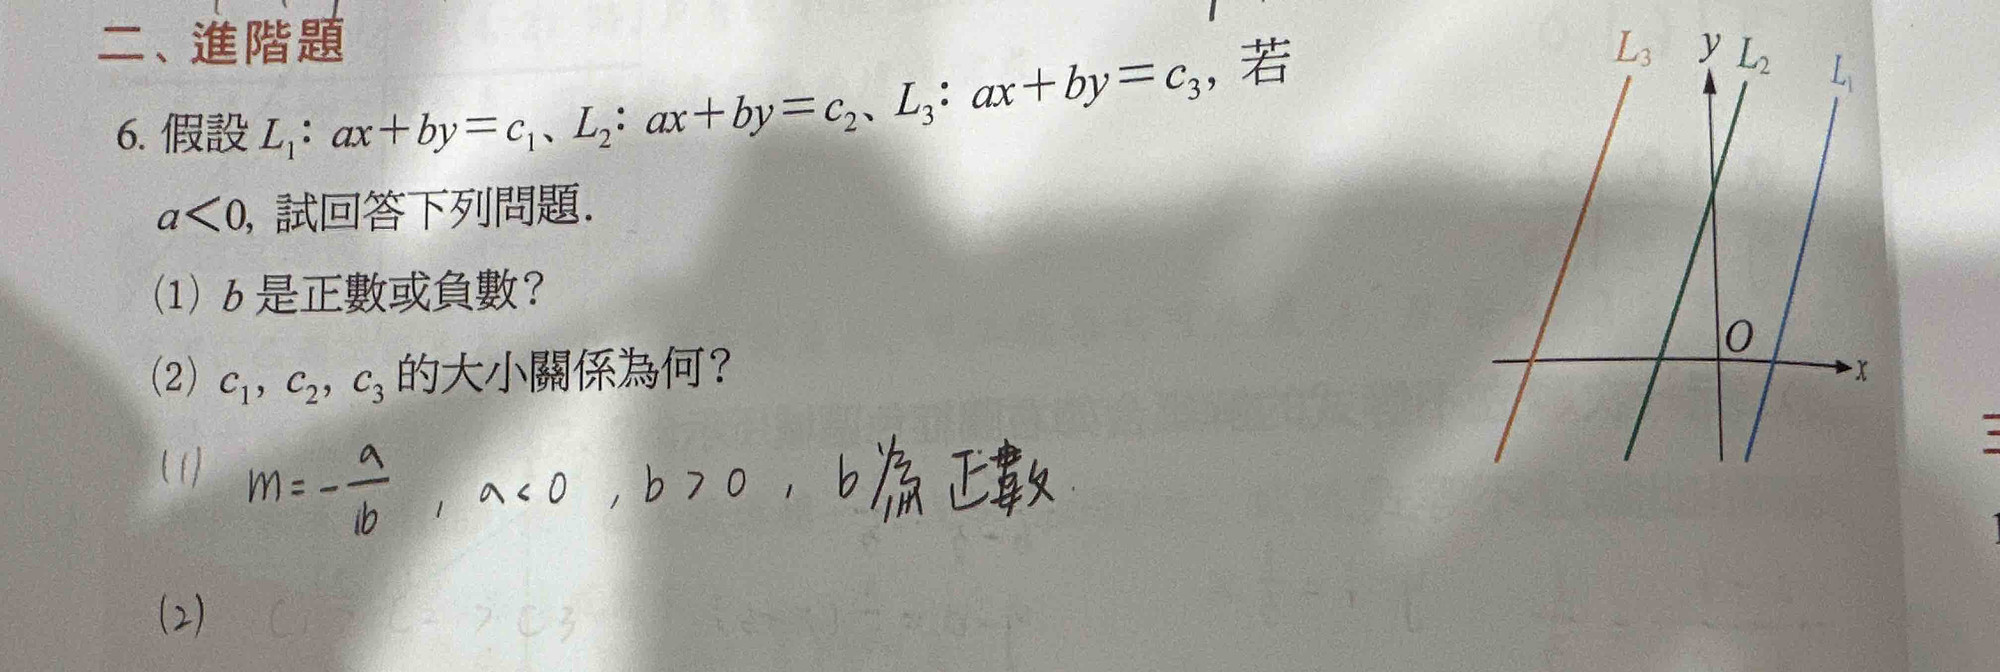 二、進階題
6. 假設 L₁：ax+by=c₁、L₂：ax+by=c₂、L₃：ax+by=c₃, 若
a<0, 試回答下列問題.
(1) b 是正數或負數?
(2) c₁, c₂, c₃ 的大小關係為何?
L₃ y L₂ L₁
O
x
(1) m = -a/b , a<0 , b>0 , b為正數.
(2) C1 > C2 > C3